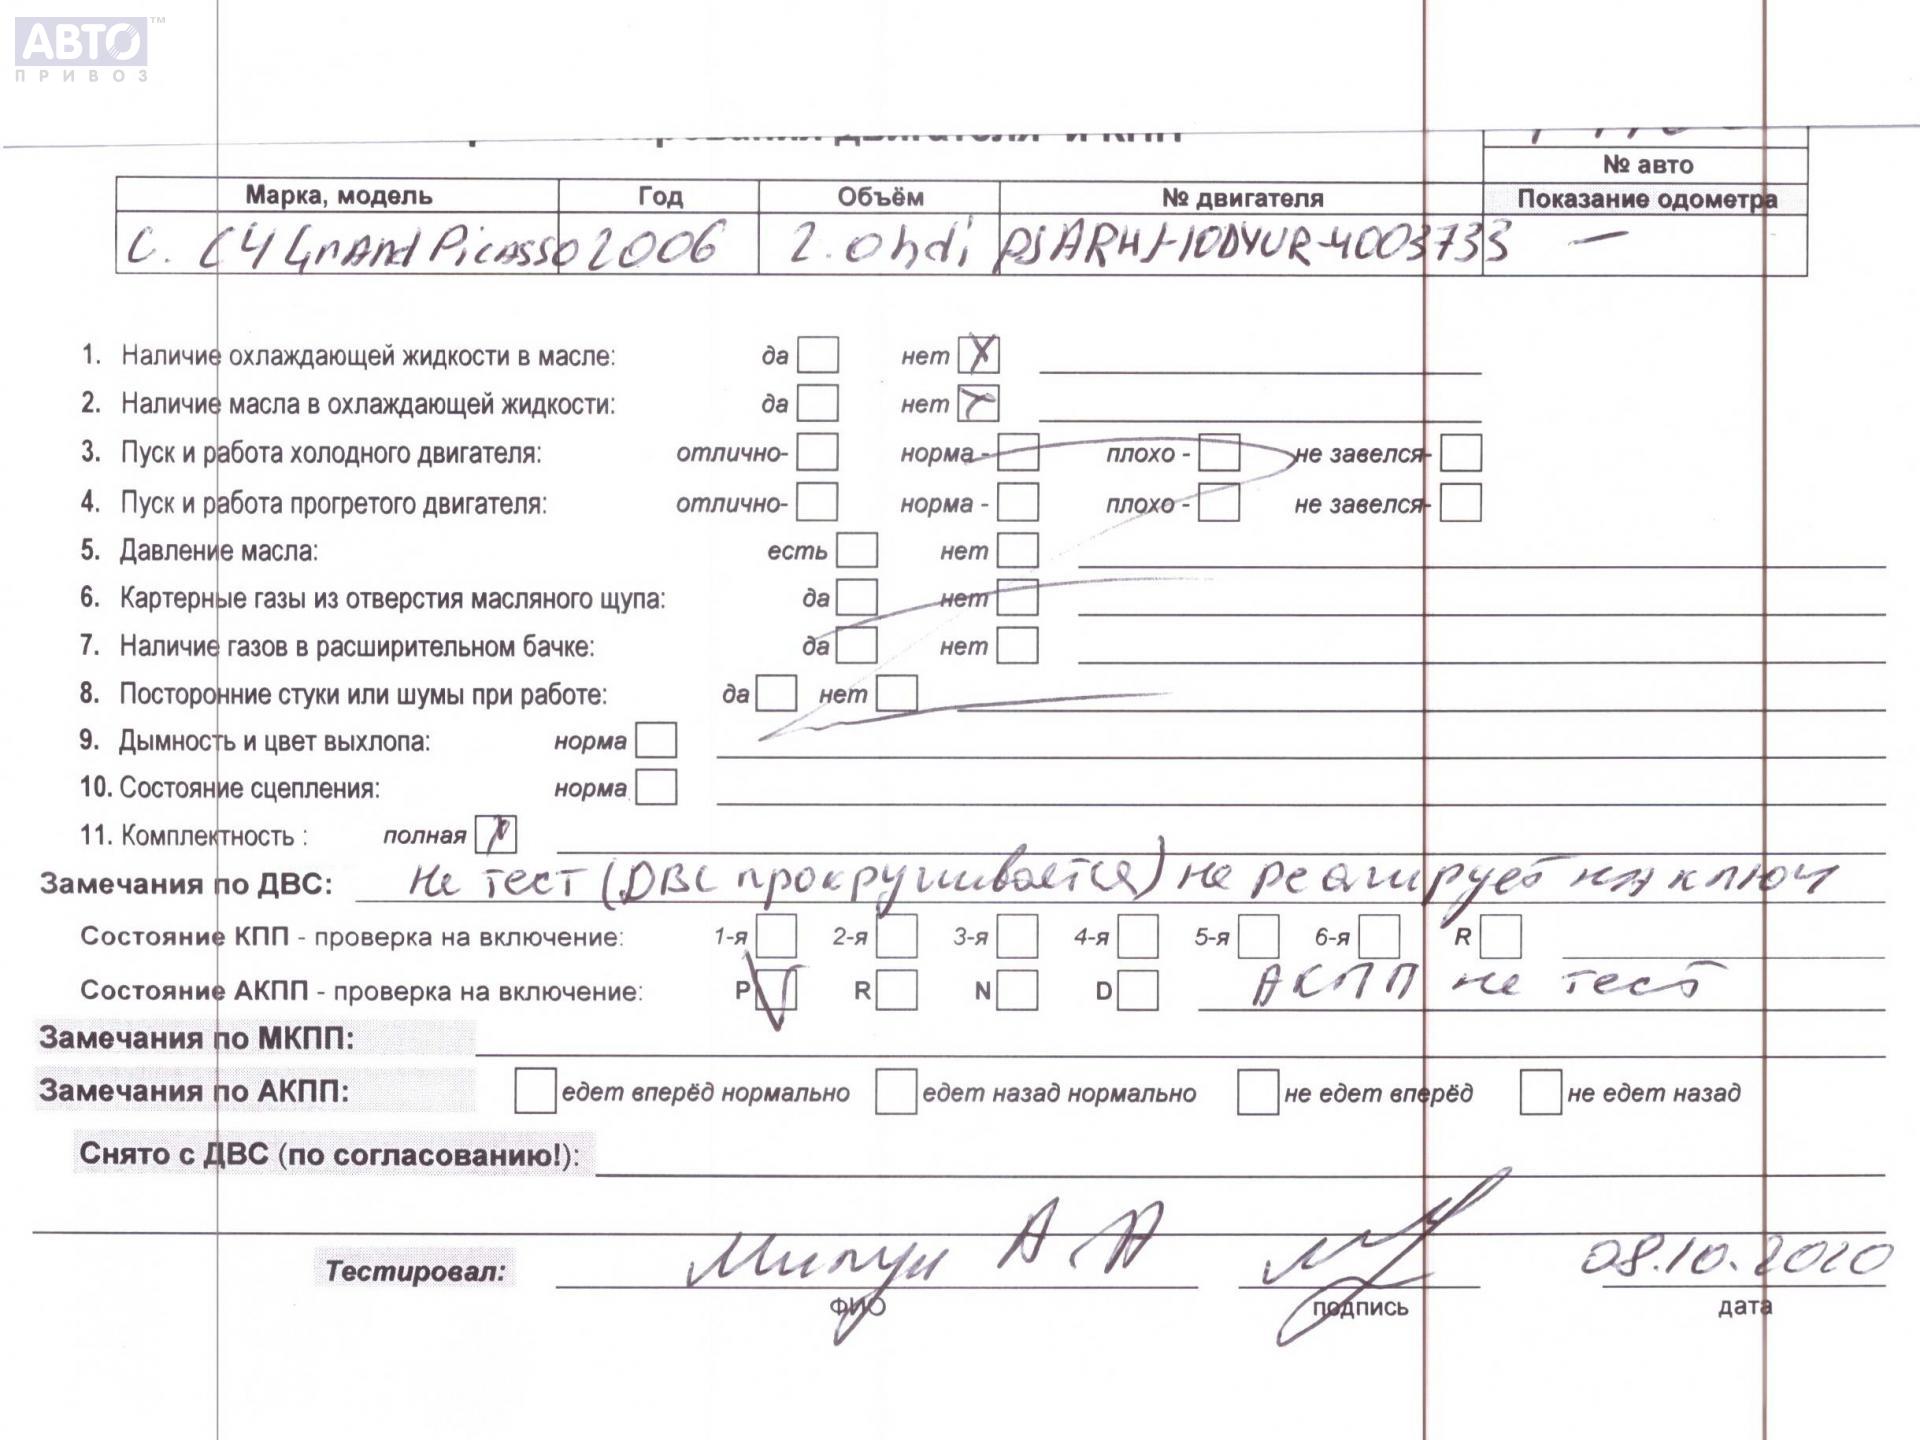 АВТО™
ПРИВОЗ
двигателя и КПП
№ авто
Марка, модель Год Объём № двигателя Показание одометра
C. C4 Grand Picasso 2006 2.0hdi —
1. Наличие охлаждающей жидкости в масле: да нет X
2. Наличие масла в охлаждающей жидкости: да нет
3. Пуск и работа холодного двигателя: отлично- норма - плохо - не завелся-
4. Пуск и работа прогретого двигателя: отлично- норма - плохо - не завелся-
5. Давление масла: есть нет
6. Картерные газы из отверстия масляного щупа: да нет
7. Наличие газов в расширительном бачке: да нет
8. Посторонние стуки или шумы при работе: да нет
9. Дымность и цвет выхлопа: норма
10. Состояние сцепления: норма
11. Комплектность : полная
Замечания по ДВС: Не тест (ДВС прокручивается) не реагирует на ключ
Состояние КПП - проверка на включение: 1-я 2-я 3-я 4-я 5-я 6-я R
Состояние АКПП - проверка на включение: P V R N D АКПП не тест
Замечания по МКПП:
Замечания по АКПП: едет вперёд нормально едет назад нормально не едет вперёд не едет назад
Снято с ДВС (по согласованию!):
Тестировал: А.А 08.10.2020
ФИО подпись дата